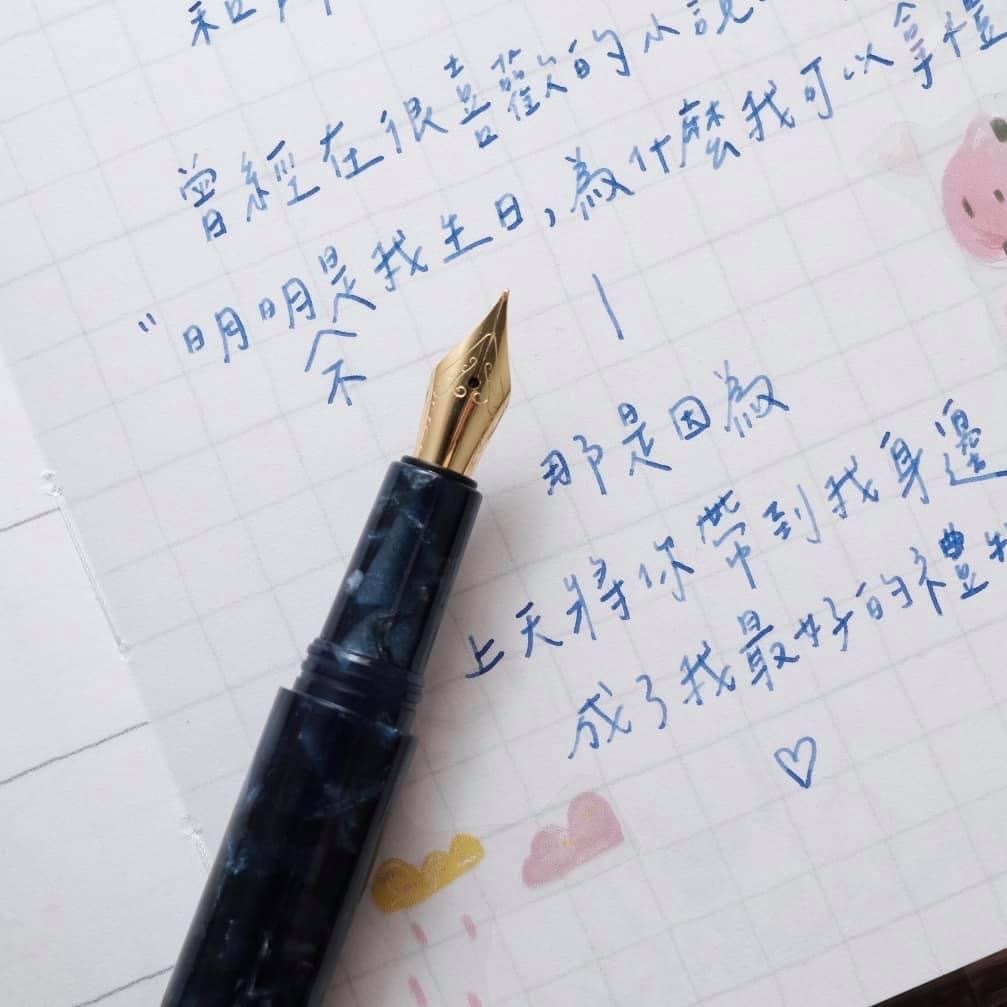 和
曾經在很喜歡的小說
“明明是我生日,為什麼我可以拿禮
不
那是因為
上天將你帶到我身邊
成了我最好的禮物
♡